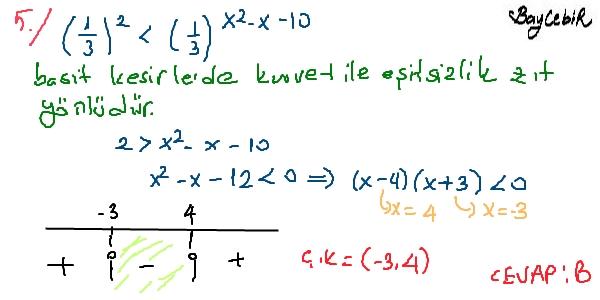 BayCebiR
5./ (1/3)² < (1/3)^(x²-x-10)
basit kesirlerde kuvvet ile eşitsizlik zıt
yönlüdür.
2 > x² - x - 10
x² - x - 12 < 0 ⇒ (x-4)(x+3) < 0
↳ x = 4 ↳ x = -3
-3 4
+ - +
Ç.K = (-3,4)
CEVAP: B